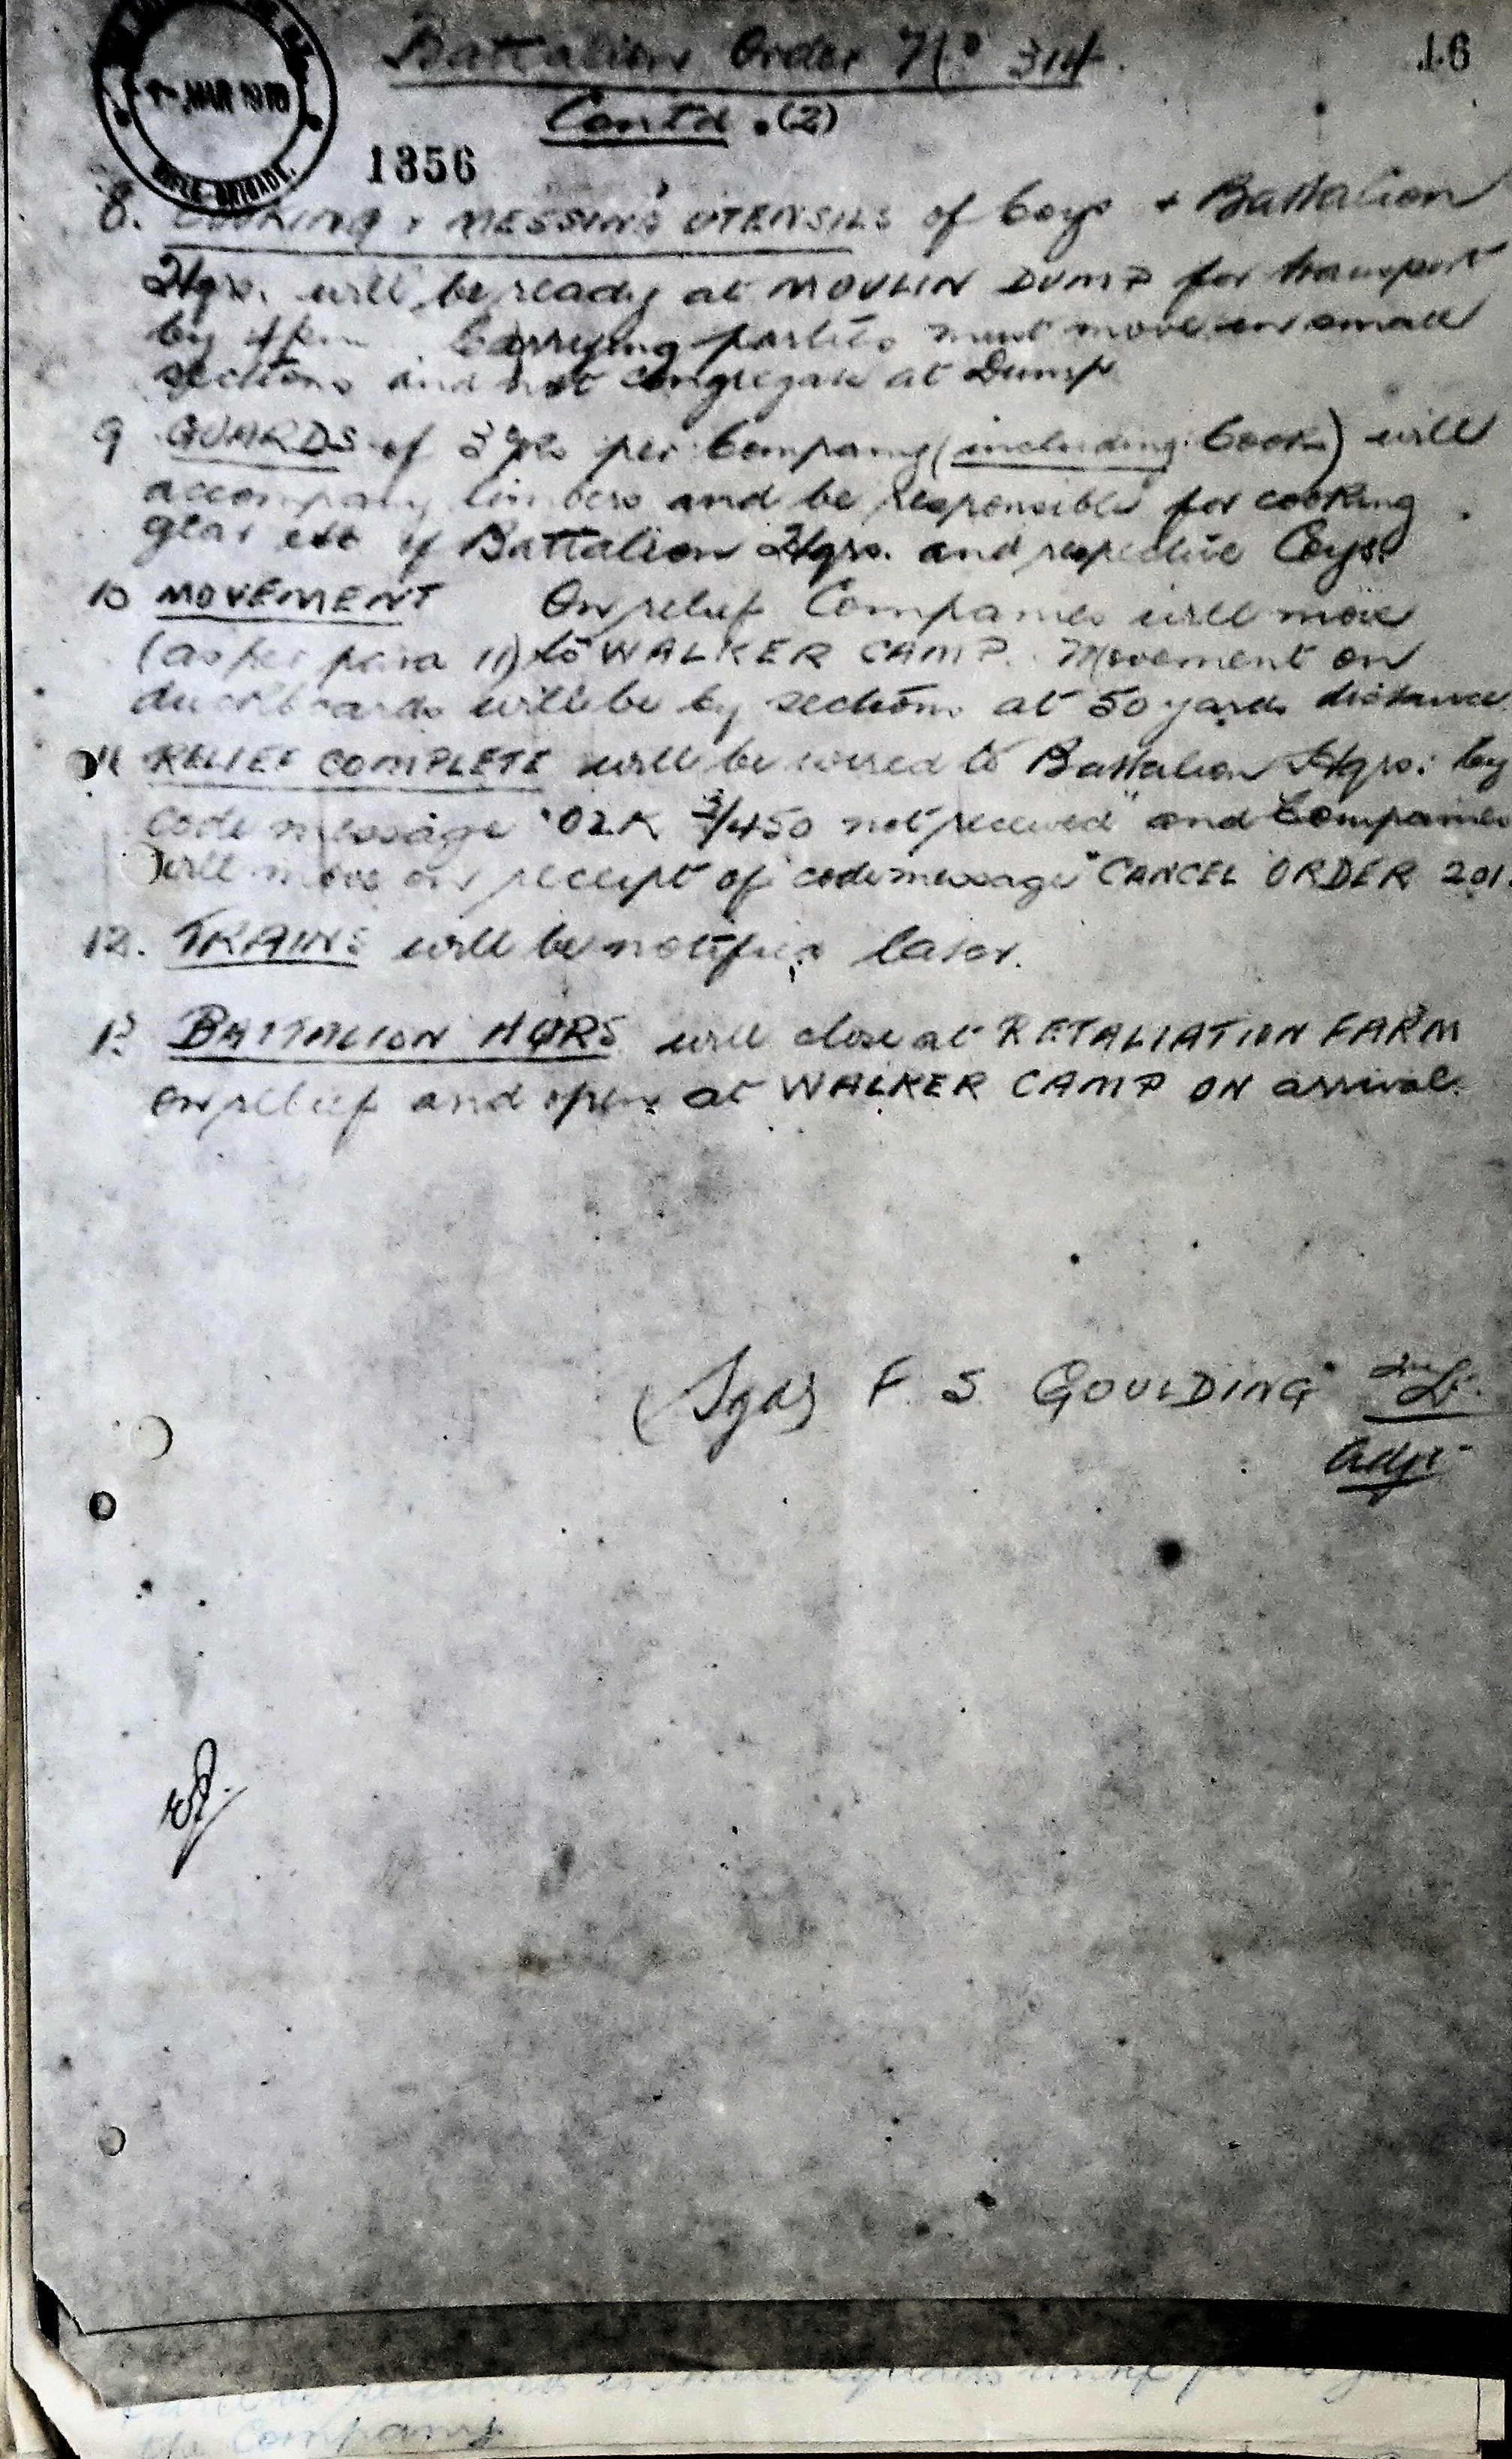 Battalion Order No 314.
16
Contd. (2)
MAR 1918
RIFLE BRIGADE.
1356
8. COOKING & MESSING UTENSILS of Coys & Battalion
Hqrs. will be ready at MOULIN DUMP for transport
by 4pm. Carrying parties must move in small
sections and not congregate at Dump
9 GUARDS of 3 per Company (including Cook) will
accompany limbers and be responsible for cooking
gear etc of Battalion Hqrs. and respective Coys.
10 MOVEMENT On relief Companies will move
(as per para 11) to WALKER CAMP. Movement on
duckboards will be by sections at 50 yards distance
11 RELIEF COMPLETE will be wired to Battalion Hqrs. by
code message "02K 3/450 not received" and Companies
will move on receipt of code message "CANCEL ORDER 201.
12. TRAINS will be notified later.
13 BATTALION HQRS will close at RETALIATION FARM
on relief and open at WALKER CAMP ON arrival.
(Sgd) F. S. GOULDING 2nd Lt.
Adjt
the Company